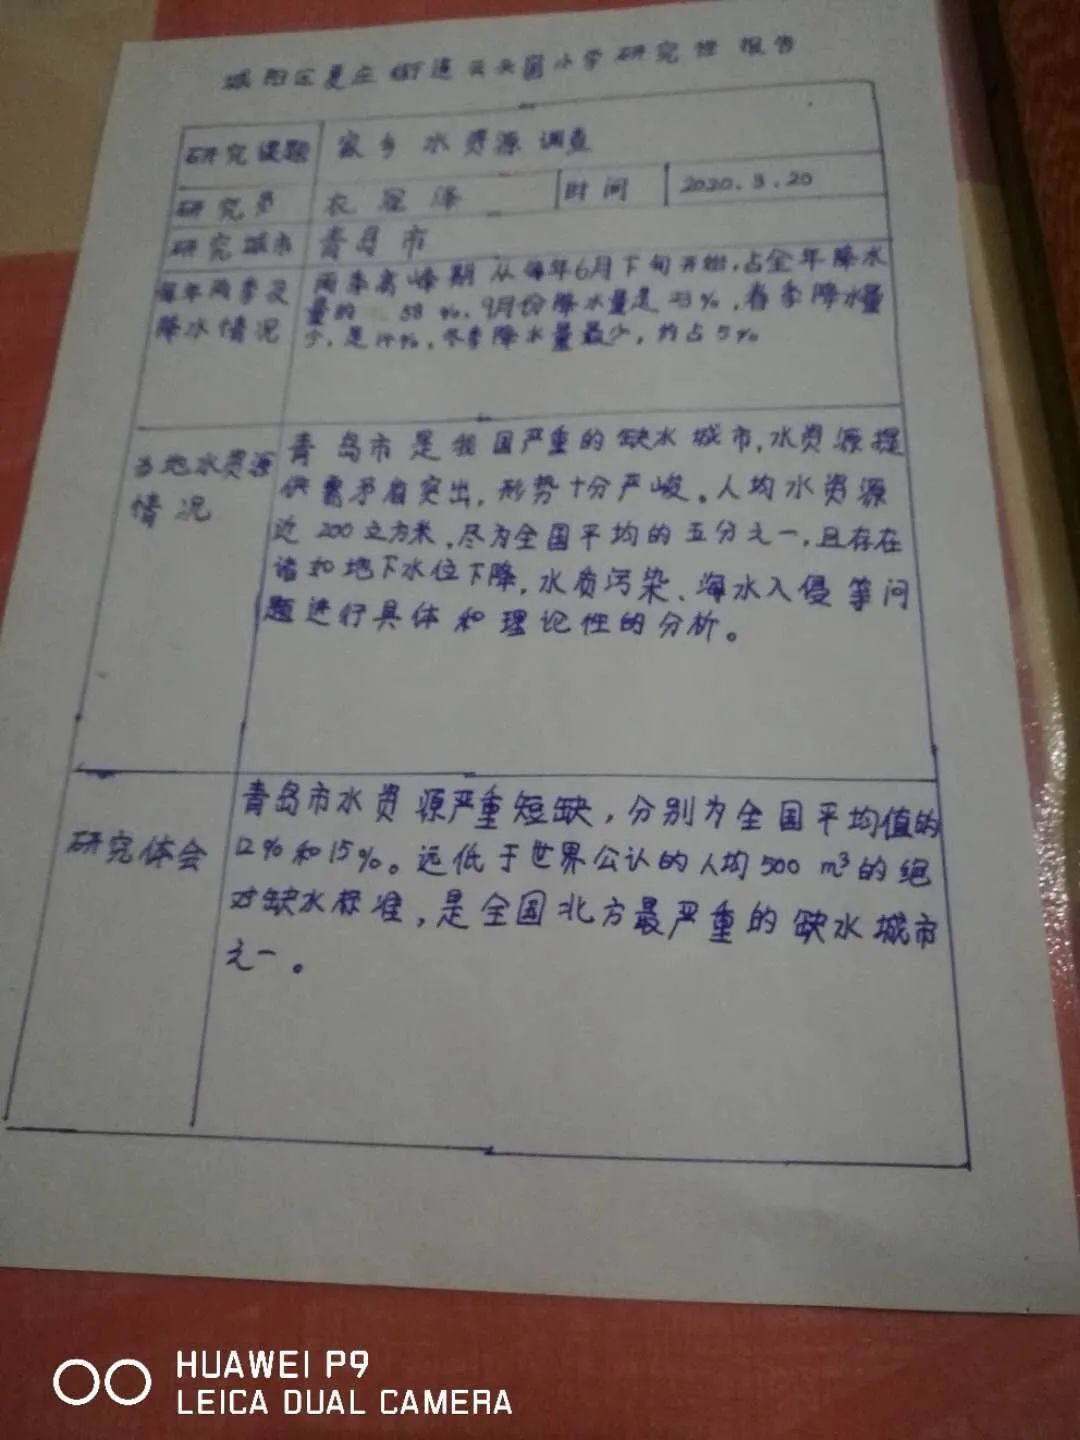 城阳区夏庄街道云头崮小学研究性报告
研究课题 家乡水资源调查
研究员 衣冠泽 时间 2020.3.20
研究城市 青岛市
每年雨季及
降水情况
雨季高峰期从每年6月下旬开始,占全年降水
量的 58%,9月份降水量是23%,春季降水量
少,是14%,冬季降水量最少,约占5%
当地水资源
情况
青岛市是我国严重的缺水城市,水资源提
供需矛盾突出,形势十分严峻。人均水资源
近200立方米,尽为全国平均的五分之一,且存在
诸如地下水位下降,水质污染、海水入侵等问
题进行具体和理论性的分析。
研究体会
青岛市水资源严重短缺,分别为全国平均值的
12%和15%。远低于世界公认的人均500m³的绝
对缺水标准,是全国北方最严重的缺水城市
之一。
HUAWEI P9
LEICA DUAL CAMERA